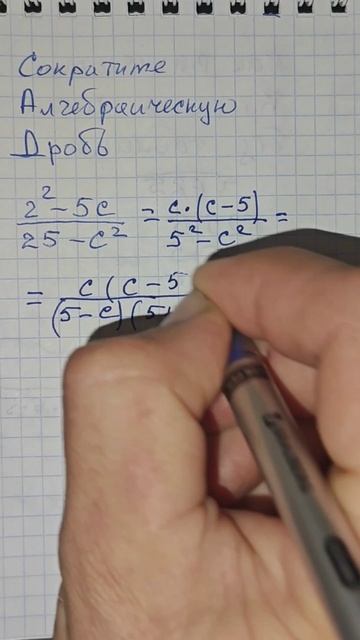 Сократите
Алгебраическую
Дробь
2² - 5c / 25 - c² = c · (c - 5) / 5² - c² =
= c (c - 5 / (5 - c) (5